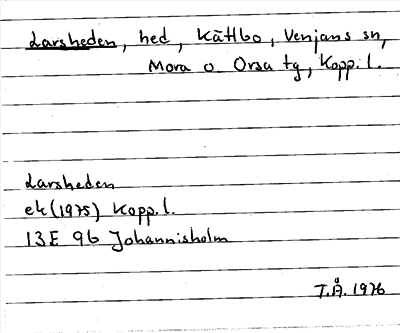 Larsheden, hed, Kättbo, Venjans sn,
Mora o Orsa tg, Kopp. l.
Larsheden
ek (1975) Kopp. l.
13E 9b Johannisholm
T.Å. 1976